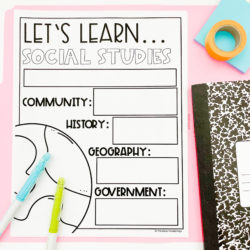 LET'S LEARN...
SOCIAL STUDIES
COMMUNITY:
HISTORY:
GEOGRAPHY:
GOVERNMENT: